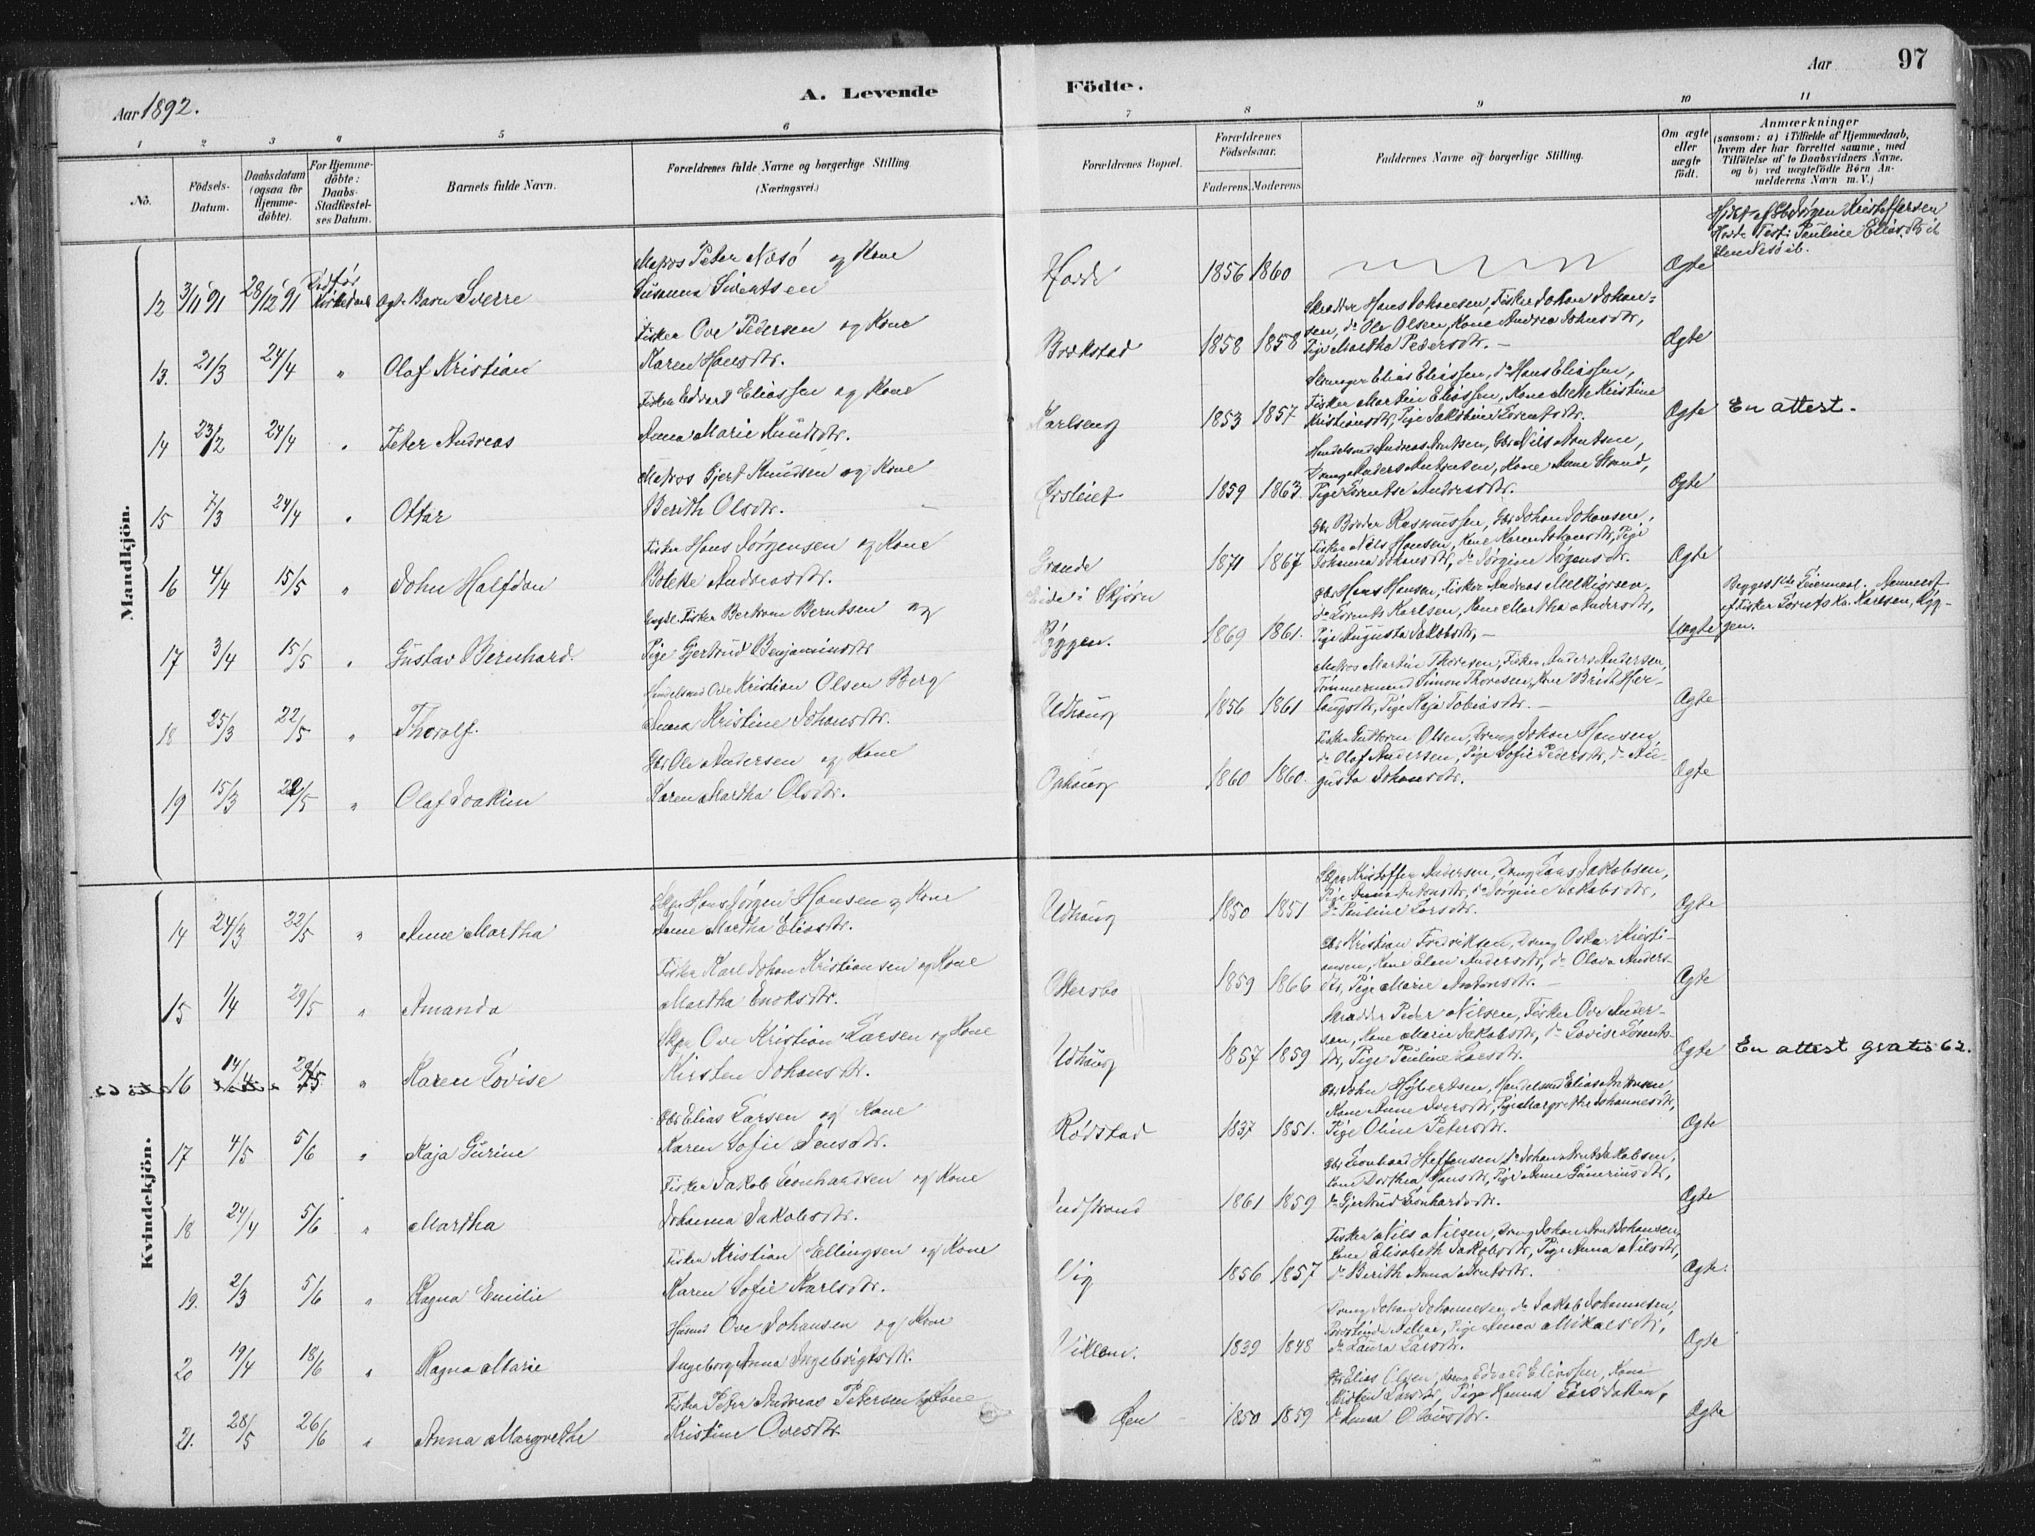 Aar 1892.
A. Levende
Födte.
Aar
97
1 2 3 4 5 6 7 8 9 10 11
No.
Födsels-Datum.
Daabsdatum (ogsaa for Hjemmedöbte).
For Hjemmedöbte: Daabs-Stadfæstelses Datum.
Barnets fulde Navn.
Forældrenes fulde Navne og borgerlige Stilling (Næringsvei.)
Forældrenes Bopæl.
Forældrenes Födselsaar.
Faderens. Moderens.
Faddernes Navne og borgerlige Stilling.
Om ægte eller uægte födt.
Anmærkninger
(saasom: a) i Tilfælde af Hjemmedaab,
hvem der har forrettet samme, med
Tilföielse af to Daabsvidners Navne,
og b) ved uægtefödte Börn An-
melderens Navn m. V.)
Mandkjön.
12 3/11 91 28/12 91 Ægte Barn Sverre
Matros Peter Næsö og Kone
Susanna Sivertsen
Hovde 1856 1860 Ægte
13. 21/3 24/4 " Olaf Kristian
Fisker Ove Pedersen og Kone
Karen Hansdtr.
Brækstad 1858 1858
Skrædder Hans Johansen, Fisker Johan Johan-
sen, do Ole Olsen, Kone Andrea Johnsdtr,
Pige Martha Pedersdtr. -
Ægte
14 23/2 24/4 " Peter Andreas
Fisker Edvard Eliassen og Kone
Anna Marie Knudsdtr.
Karlseng 1853 1857
Elias Eliassen, do Hans Eliassen,
Fisker Martin Eliassen, Kone Mette Kristine
Kristiansdtr, Pige Jakobine Lorentsdtr.
Ægte En attest.
15 7/3 24/4 " Ottar
Matros Gjert Knudsen og Kone
Berith Olsdtr.
1859 1863.
Handelsmd Andreas Arntsen, Gbr Nils Arntsen,
Pige Lorentse Andersdtr.
Ægte
16 4/4 15/5 " John Halfdan
Fisker Hans Jørgensen og Kone
Bolette Andreasdtr.
Grande 1871 1867
Fisker Nils Hansen, Kone Karen Johansdtr, Pige
Johanna Johansdtr, do Jørgine Jørgensdtr.
Ægte
17 3/4 15/5 " Gustav Bernhard.
Ungk. Fisker Bertram Berntsen og
Pige Gjertrud Benjaminsdtr
Eide i Skjørn
Røggen. 1869 1861.
Gbr Hans Hansen, Fisker Andreas Melkiorsen,
do Lorents Karlsen, Kone Martha Andersdtr,
Pige Augusta Jakobsdtr, -
Uægte
Begges 1ste Leiermaal. Anmeldt
af Fisker Lorents Kr. Karlsen, Røg-
gen.
18 25/3 22/5 " Thoralf.
Handelsmd Ove Kristian Olsen Berg
Anna Kristine Johansdtr.
Udhaug 1856 1861
Matros Martin Thoresen, Fisker Anders Andersen,
Tømmermand Simon Thoresen, Kone Brith Her-
langsdtr, Pige Kaja Tobiasdtr. -
Ægte
19 15/3 22/5 " Olaf Joakim
Gbr Ole Andersen og Kone
Karen Martha Olsdtr.
Ophaug 1860 1860.
Fisker Guttorm Olsen, Dreng Johan Hansen,
do Olaf Andersen, Pige Sofie Pedersdtr, do Au-
gusta Johansdtr.
Ægte
Kvindekjön.
14 24/3 22/5 " Anne Martha
Hans Jørgen Hansen og Kone
Anne Martha Eliasdtr.
Udhaug 1850 1851
Kristoffer Andersen, Dreng Lars Jakobsen,
Pige Anna Antonsdtr, do Jørgine Jakobsdtr,
do Pauline Larsdtr.
Ægte
15 1/4 29/5 " Amanda
Fisker Karl Johan Kristiansen og Kone
Martha Enoksdtr.
Ottersbo 1859 1866
Gbr Kristian Fredriksen, Dreng Oskar Kristi-
ansen, Kone Elen Andersdtr, do Olava Anders-
dtr, Pige Marie Antonsdtr. -
Ægte
16 14/4 29/5 " Karen Lovise
Ove Kristian Larsen og Kone
Kirsten Johansdtr.
Udhaug 1857 1859
Skrædder Peder Nilsen, Fisker Ove Ander-
sen, Kone Marie Jakobsdtr, do Lovise Lorents-
dtr, Pige Pauline Larsdtr.
Ægte En attest gratis 62.
17 4/5 5/6 " Kaja Gurine
Gbr Elias Larsen og Kone
Karen Sofie Jensdtr.
Rødstad 1837 1851.
Gbr John Hybertsen, Handelsmd Elias Antonsen,
Kone Anne Iversdtr, Pige Margrethe Johannesdtr,
Pige Oline Petersdtr.
Ægte
18 24/4 5/6 " Martha
Fisker Jakob Leonhardsen og Kone
Johanna Jakobsdtr.
Indstrand 1861 1859
Gbr Leonhard Steffensen, do Johan Arnt Jakobsen,
Kone Dorthea Hansdtr, Pige Anne Gunerius dtr,
do Gjertrud Leonhardsdtr.
Ægte
19. 2/3 5/6 " Ragna Emilie
Fisker Kristian Ellingsen og Kone
Karen Sofie Karlsdtr.
Vig 1856 1857
Fisker Nils Nilsen, Dreng Johan Arnt Johansen,
Kone Elisabeth Jakobsdtr, Pige Anna Nilsdtr,
do Berith Anna Arntsdtr.
Ægte.
20 19/4 18/6 " Ragna Marie
Husmd Ove Johansen og Kone
Ingeborg Anna Ingebrigtsdtr.
Viklem. 1839 1848
Dreng Johan Johannesen, do Jakob Johannesen,
Pige Anna Mikalsdtr,
do Laura Larsdtr.
Ægte
21. 28/5 26/6 " Anna Margrethe
Fisker Peter Andreas Petersen og Kone
Kristine Ovesdtr.
Øen 1850 1859
Gbr Elias Olsen, Dreng Edvard Eliassen, Kone
Kirsten Larsdtr, Pige Hanna Larsdatter,
do Anna Olausdtr.
Ægte